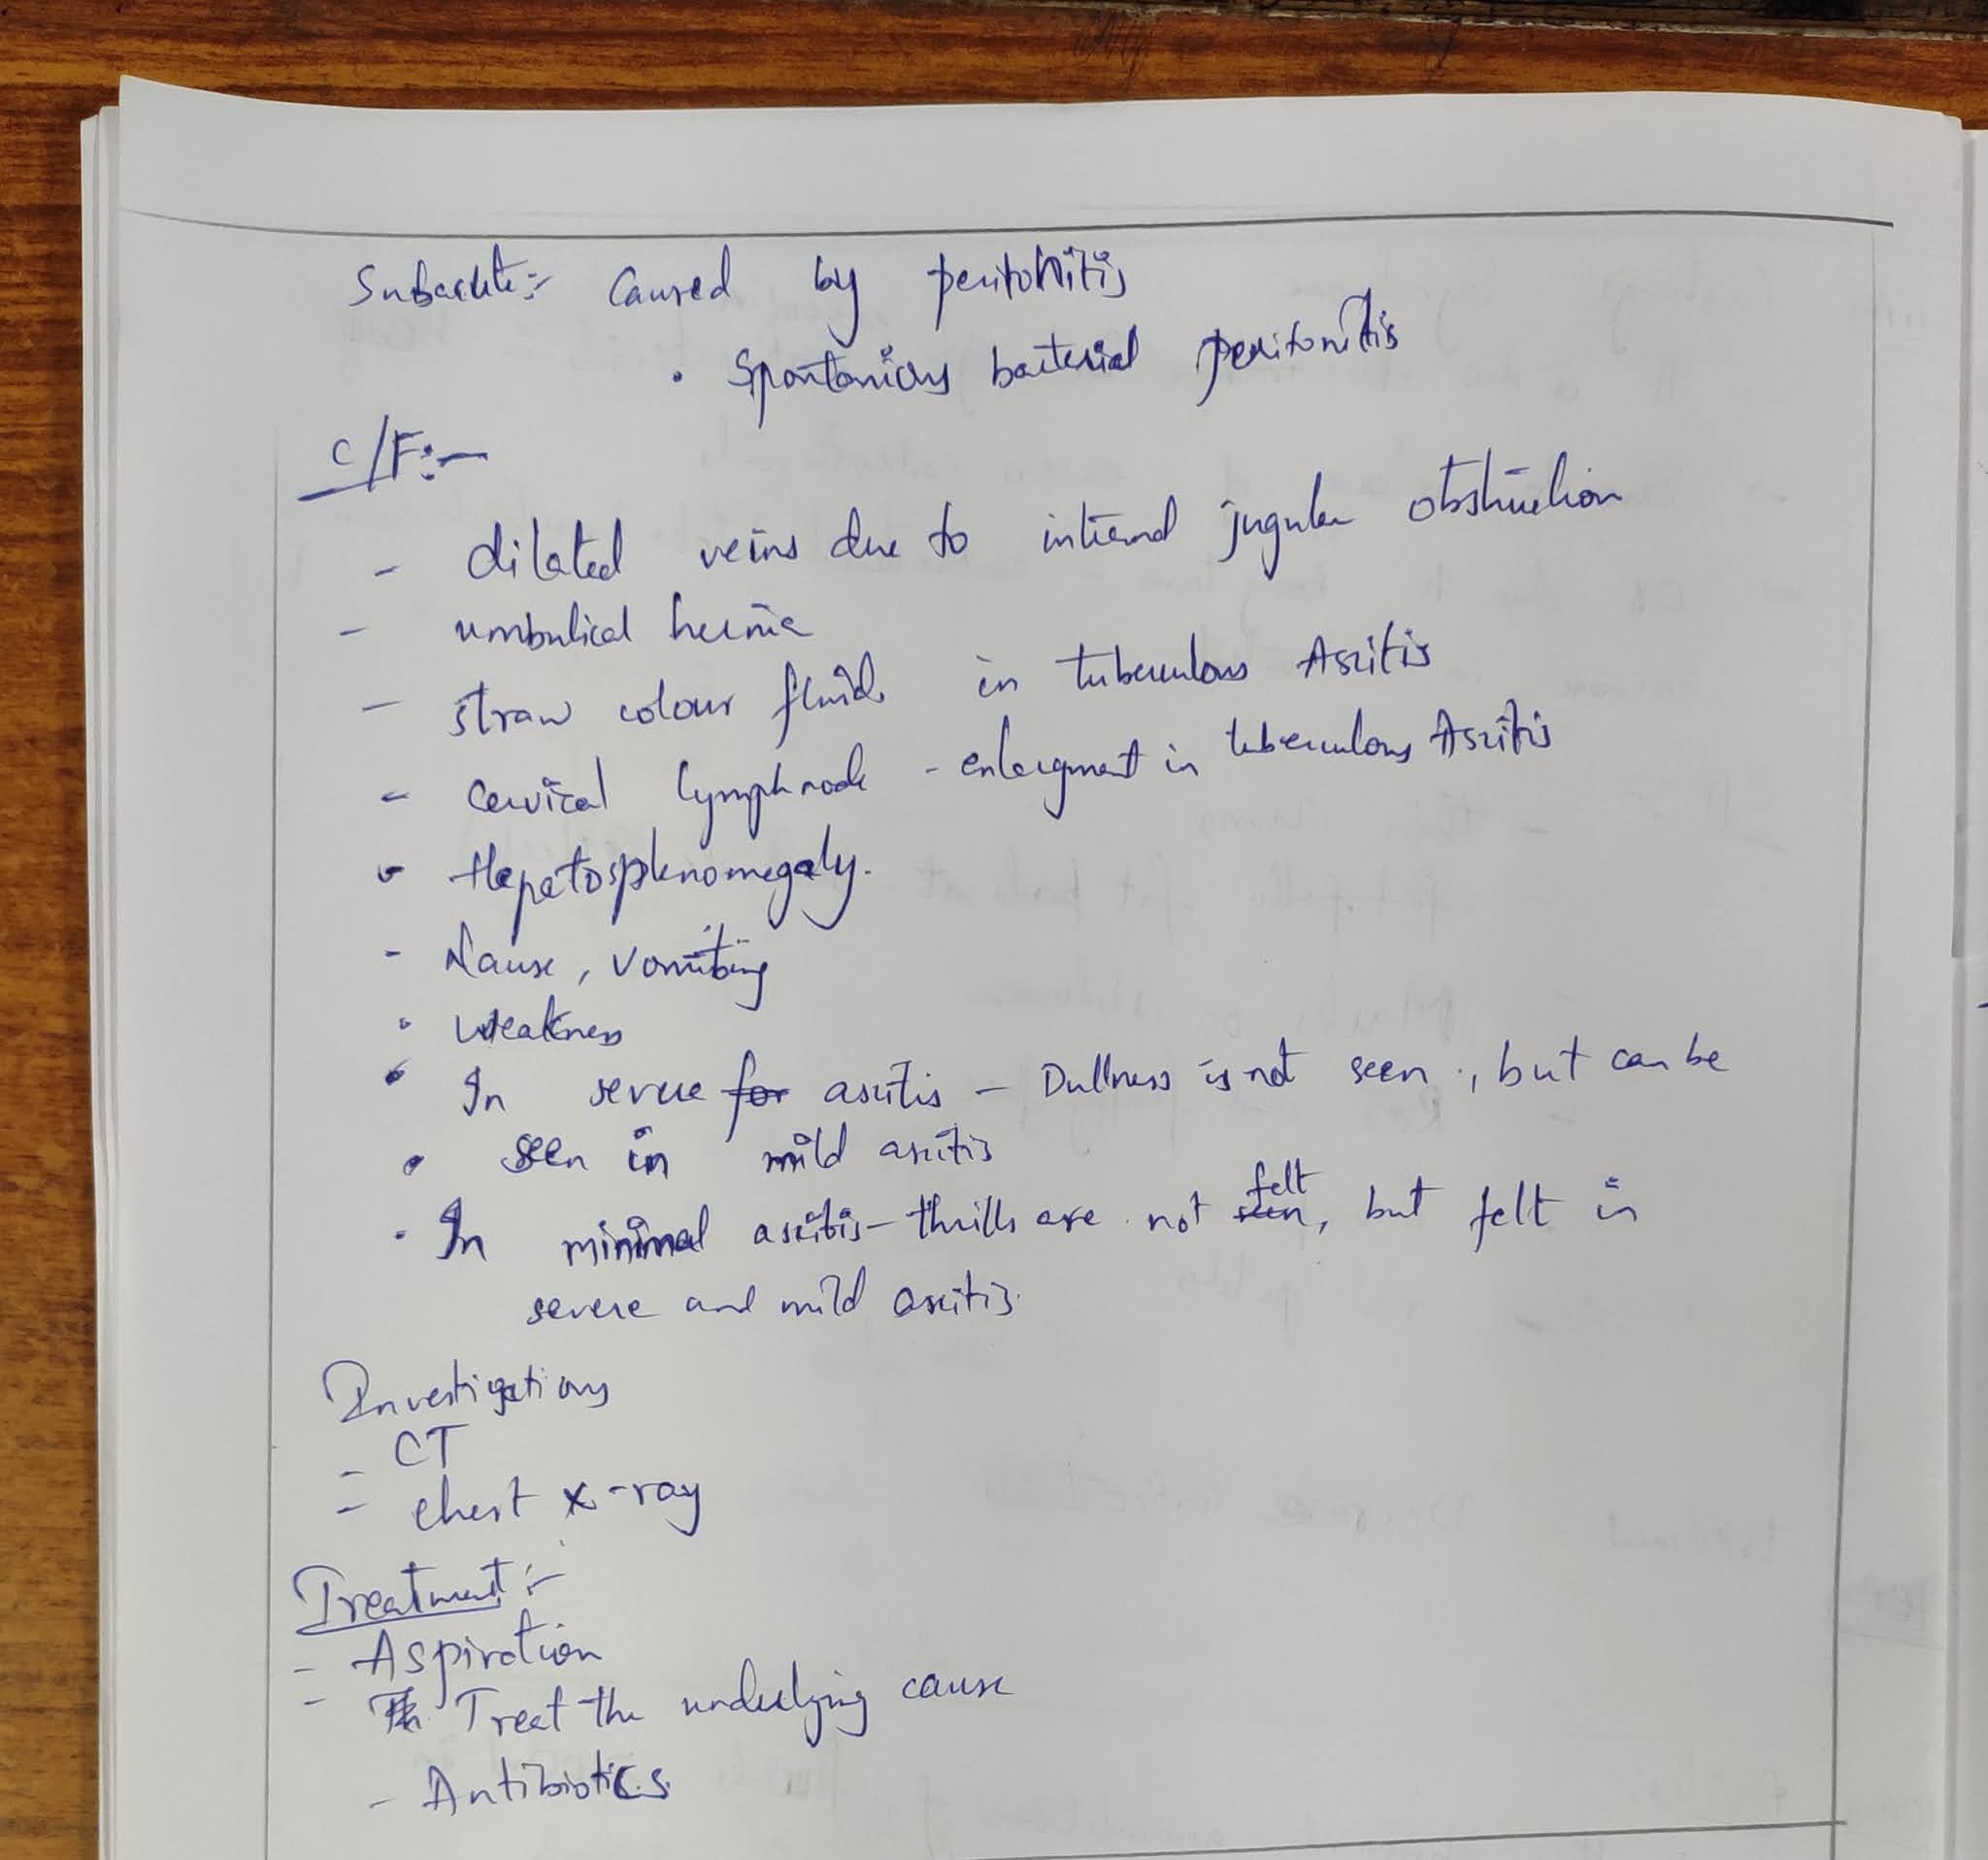 Subacute:- Caused by peritonitis
• Spontanious bacterial peritonitis
C/F:-
- dilated veins due to internal jugular obstruction
- umbulical hernia
- straw colour fluid in tuberculous Ascitis
- cervical lymph node - enlargment in tuberculous Ascitis
- Hepatosplenomegaly.
- Nause, vomiting
• weakness
• In severe for ascitis - Dullness is not seen, but can be
• seen in mild ascitis
• In minimal ascitis - thrills are not seen felt, but felt in
severe and mild ascitis.
Investigations
- CT
- chest x-ray
Treatment:-
- Aspiration
- Treat the underlying cause
- Antibiotics.